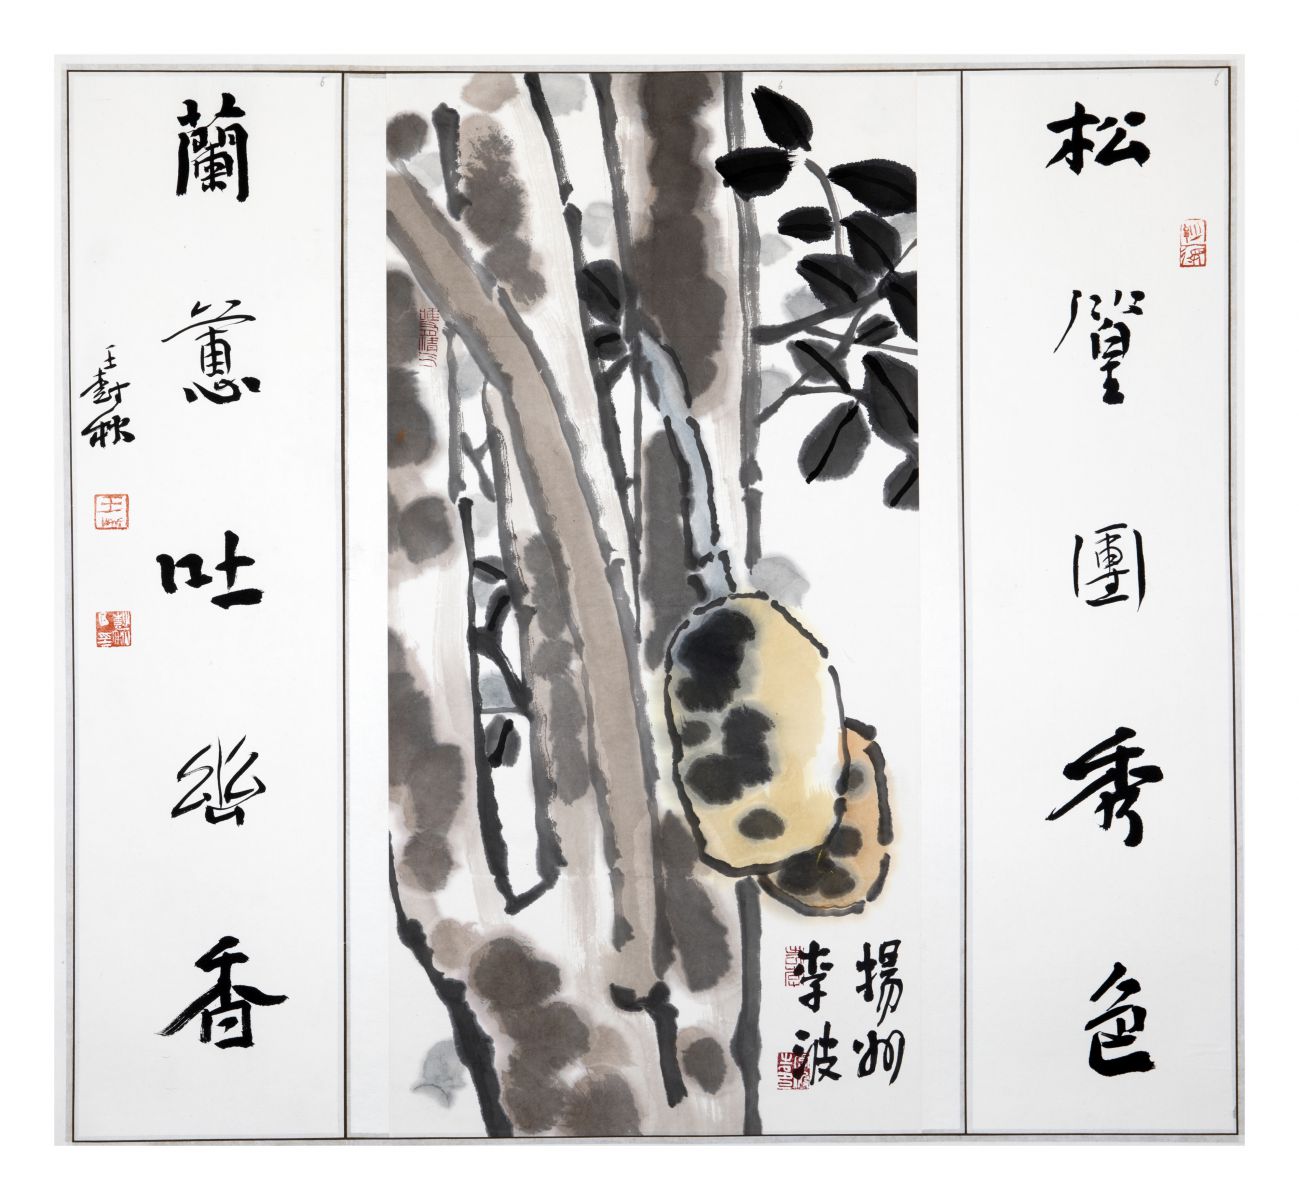 松篁團秀色
揚州
李波
蘭蕙吐幽香
王壽秋